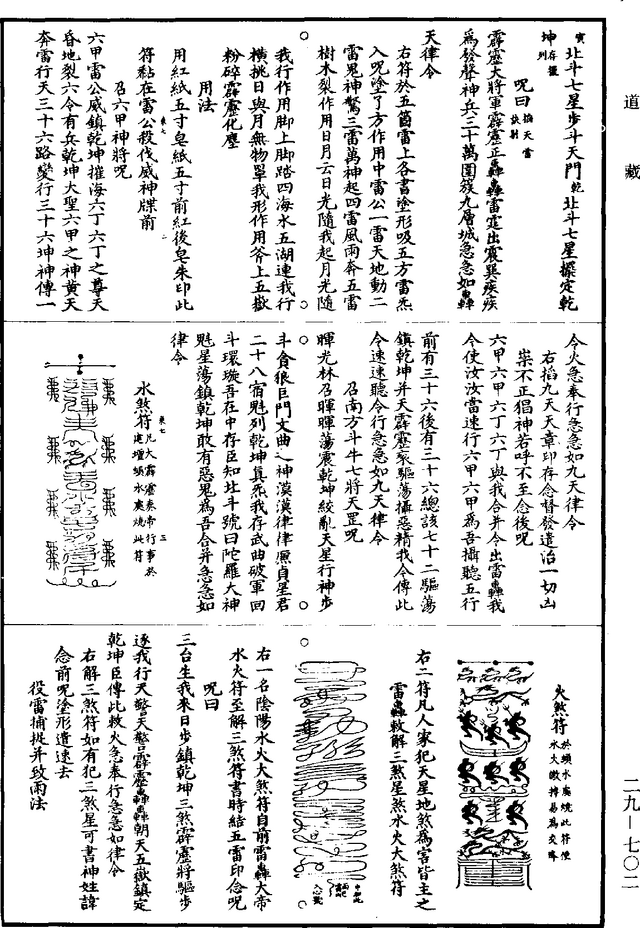 道藏
坤 北斗七星步斗天門乾北斗七星擺定乾
呪曰
霹靂大將軍霹靂正轟轟雷霆出震巽疾疾
為發聲神兵三十萬圍簇九層城急急如轟
天律令
右符於五箇雷上各書塗形吸五方雷炁
入呪塗了方作用中雷公一雷天地動二
雷鬼神驚三雷萬神起四雷風雨奔五雷
樹木裂作用日月云日光隨我起月光隨
我行作用脚上脚踏四海水五湖連我行
橫挑日與月無物單我形作用斧上五嶽
粉碎霹靂化塵
用法
用紅紙五寸皂紙五寸前紅後皂朱印此
符黏在雷公殺伐威神牒前
召六甲神將呪
六甲雷公威鎮乾坤摧海六丁六丁之尊天
昏地裂六令有兵乾坤大聖六甲之神黄天
奔雷行天三十六路變行三十六坤神傳一
令火急奉行急急如九天律令
右搯九天天章印存念督發遣治一切凶
祟不正猖神若呼不至念後呪
六甲六甲六丁六丁與我合并令出雷轟我
令使汝汝當速行六甲六甲為吾攝聽五行
前有三十六後有三十六總該七十二驅蕩
鎮乾坤并天霹靂裂驅蕩攝惡精我令傳此
令速速聽令行急急如九天律令
召南方斗牛七將天罡呪
暉光林召暉暉蕩震乾坤絞亂天星行神步
斗貪狼巨門文曲之神漠漠律律廉貞星君
二十八宿魁列乾坤真炁我存武曲破軍回
斗環璇吾在中存臣知北斗號曰陀羅大神
魁星蕩鎮乾坤敢有惡鬼為吾合并急急如
律令
水煞符 凡大霹靂奏帝行事於
建壇頭水處燒此符
火煞符 於頭水處燒此符使
右二符凡人家犯天星地煞為害皆主之
雷轟救解三煞星煞水火大煞符
右一名陰陽水火大煞符自前雷轟大帝
水火符至解三煞符書時結五雷印念呪
呪曰
三台生我來日步鎮乾坤三煞霹靂將驅步
逐我行天警天警霹靂轟轟朝天五嶽鎮定
乾坤臣傳此救火急奉行急急如律令
右解三煞符如有犯三煞星可書神姓諱
念前呪塗形遣速去
役雷捕捉并致雨法
二九—七〇二